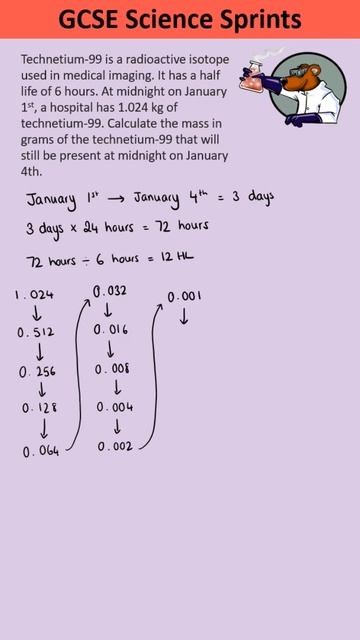 GCSE Science Sprints
Technetium-99 is a radioactive isotope
used in medical imaging. It has a half
life of 6 hours. At midnight on January
1st, a hospital has 1.024 kg of
technetium-99. Calculate the mass in
grams of the technetium-99 that will
still be present at midnight on January
4th.
January 1st → January 4th = 3 days
3 days × 24 hours = 72 hours
72 hours ÷ 6 hours = 12 HL
1.024
↓
0.512
↓
0.256
↓
0.128
↓
0.064
0.032
↓
0.016
↓
0.008
↓
0.004
↓
0.002
0.001
↓